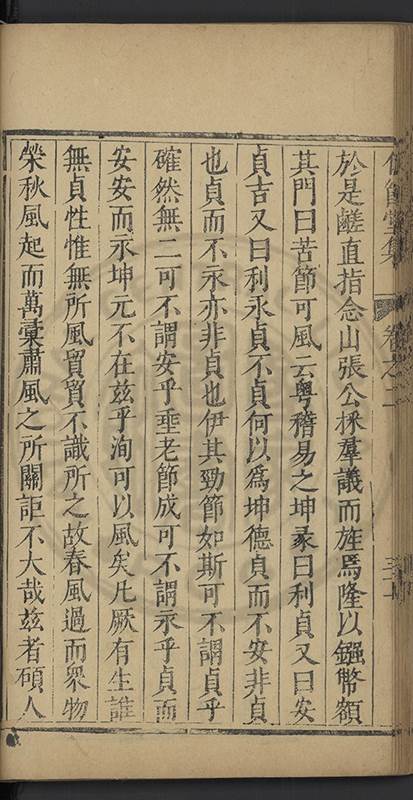 堂集 卷之二
於是鹺直指念山張公採羣議而旌焉隆以鏹幣額
其門曰苦節可風云粵稽易之坤彖曰利貞又曰安
貞吉又曰利永貞不貞何以爲坤德貞而不安非貞
也貞而不永亦非貞也伊其勁節如斯可不謂貞乎
確然無二可不謂安乎垂老節成可不謂永乎貞而
安安而永坤元不在玆乎洵可以風矣凡厥有生誰
無貞性惟無所風貿貿不識所之故春風過而衆物
榮秋風起而萬彙肅風之所關詎不大哉玆者碩人